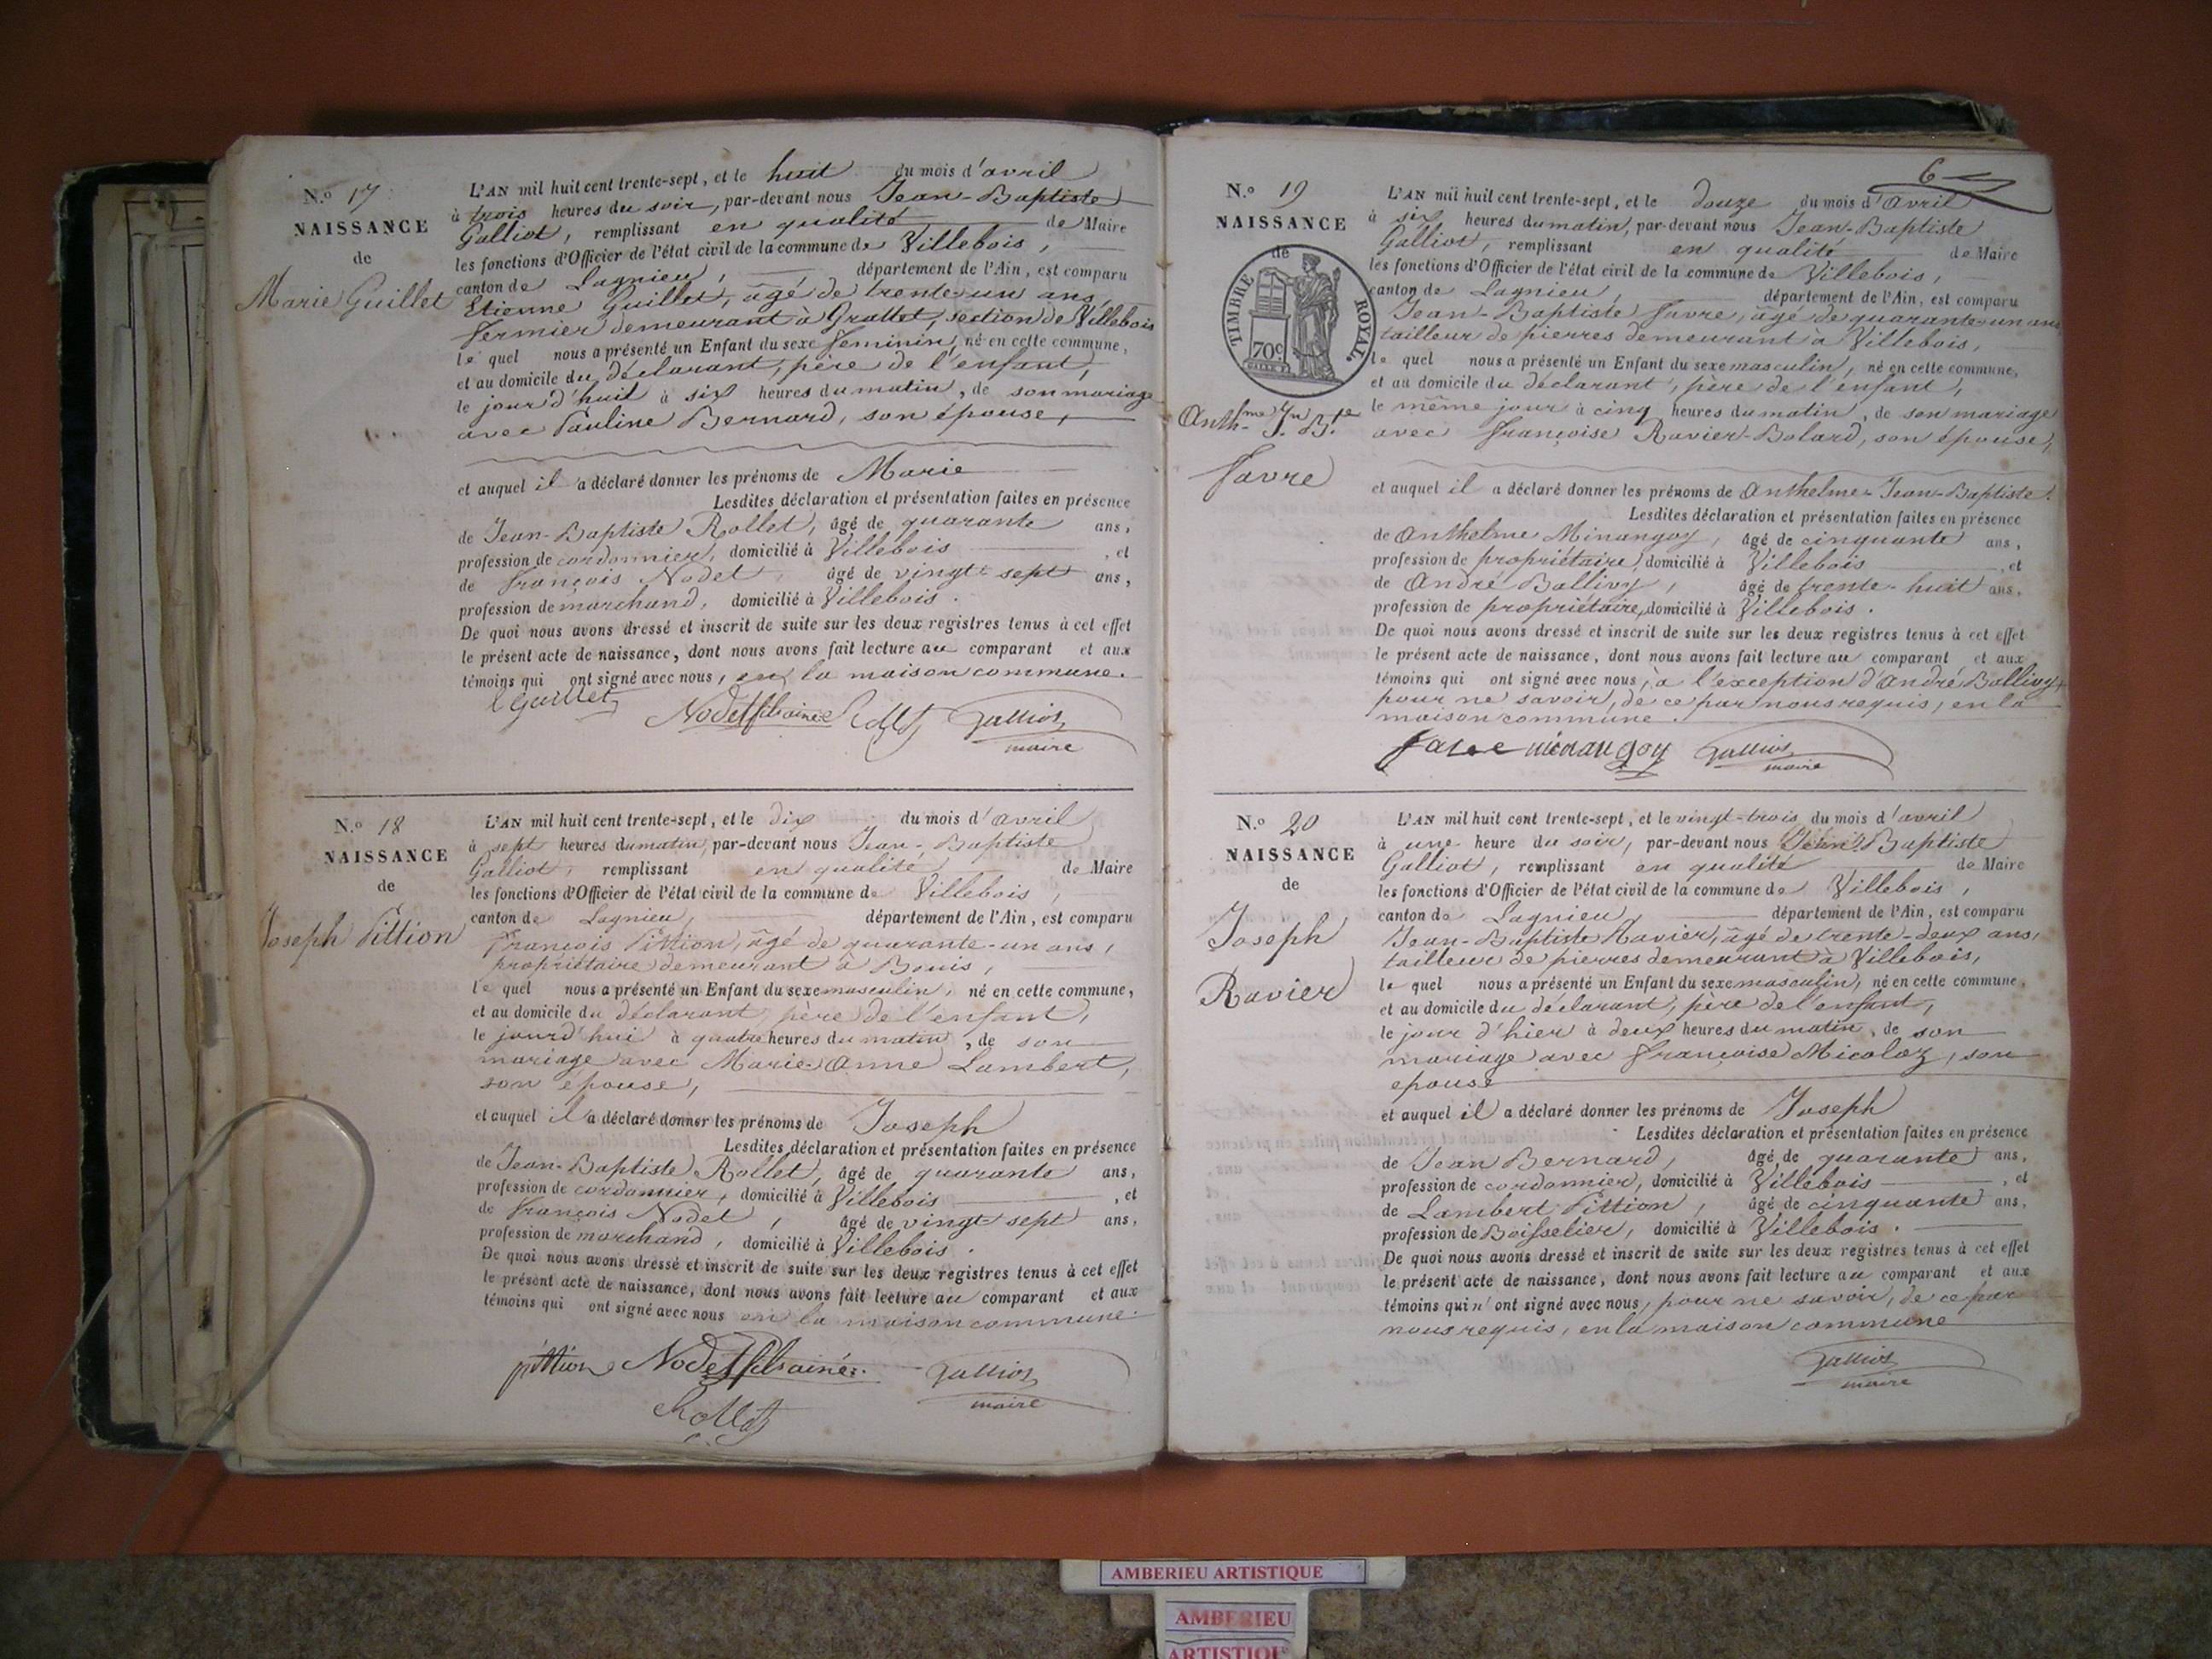 N.º 17
NAISSANCE
de
Marie Guillet
L'AN mil huit cent trente-sept, et le huit du mois d'avril
à trois heures du soir, par-devant nous Jean-Baptiste
Galliot, remplissant en qualité de Maire
les fonctions d'Officier de l'état civil de la commune de Villebois,
canton de Lagnieu, département de l'Ain, est comparu
Etienne Guillet, âgé de trente-un ans,
fermier demeurant à Grattet, section de Villebois
le quel nous a présenté un Enfant du sexe feminin, né en cette commune,
et au domicile du déclarant, père de l'enfant,
le jourd'huit à six heures du matin, de son mariage
avec Pauline Bernard, son épouse,
et auquel il a déclaré donner les prénoms de Marie
Lesdites déclaration et présentation faites en présence
de Jean-Baptiste Rollet, âgé de quarante ans,
profession de cordonnier, domicilié à Villebois, et
de François Nodet, âgé de vingt-sept ans,
profession de marchand, domicilié à Villebois.
De quoi nous avons dressé et inscrit de suite sur les deux registres tenus à cet effet
le présent acte de naissance, dont nous avons fait lecture au comparant et aux
témoins qui ont signé avec nous, en la maison commune.
Guillet Nodet fils ainé Rollet Galliot
maire
N.º 18
NAISSANCE
de
Joseph Pittion
L'AN mil huit cent trente-sept, et le dix du mois d'avril
à sept heures du matin, par-devant nous Jean-Baptiste
Galliot, remplissant en qualité de Maire
les fonctions d'Officier de l'état civil de la commune de Villebois,
canton de Lagnieu, département de l'Ain, est comparu
François Pittion, âgé de quarante-un ans,
propriétaire demeurant à Bouis,
le quel nous a présenté un Enfant du sexe masculin, né en cette commune,
et au domicile du déclarant, père de l'enfant,
le jourd'hui à quatre heures du matin, de son
mariage avec Marie-Anne Lambert,
son épouse,
et auquel il a déclaré donner les prénoms de Joseph
Lesdites déclaration et présentation faites en présence
de Jean-Baptiste Rollet, âgé de quarante ans,
profession de cordonnier, domicilié à Villebois, et
de François Nodet, âgé de vingt-sept ans,
profession de marchand, domicilié à Villebois.
De quoi nous avons dressé et inscrit de suite sur les deux registres tenus à cet effet
le présent acte de naissance, dont nous avons fait lecture au comparant et aux
témoins qui ont signé avec nous en la maison commune.
pittion Nodet fils ainé Galliot
maire
Rollet
6
N.º 19
NAISSANCE
de
TIMBRE ROYAL
70c
Anth.me J.n B.te
Favre
L'AN mil huit cent trente-sept, et le douze du mois d'Avril
à six heures du matin, par-devant nous Jean-Baptiste
Galliot, remplissant en qualité de Maire
les fonctions d'Officier de l'état civil de la commune de Villebois,
canton de Lagnieu, département de l'Ain, est comparu
Jean-Baptiste Favre, âgé de quarante-un ans
tailleur de pierres demeurant à Villebois,
le quel nous a présenté un Enfant du sexe masculin, né en cette commune,
et au domicile du déclarant, père de l'enfant,
le même jour à cinq heures du matin, de son mariage
avec Françoise Ravier-Bolard, son épouse,
et auquel il a déclaré donner les prénoms de Anthelme-Jean-Baptiste.
Lesdites déclaration et présentation faites en présence
de Anthelme Minangoy, âgé de cinquante ans,
profession de propriétaire, domicilié à Villebois, et
de André Ballivy, âgé de trente-huit ans,
profession de propriétaire, domicilié à Villebois.
De quoi nous avons dressé et inscrit de suite sur les deux registres tenus à cet effet
le présent acte de naissance, dont nous avons fait lecture au comparant et aux
témoins qui ont signé avec nous, à l'exception d'André Ballivy,
pour ne savoir, de ce par nous requis, en la
maison commune.
minangoy Galliot
maire
N.º 20
NAISSANCE
de
Joseph
Ravier
L'AN mil huit cent trente-sept, et le vingt-trois du mois d'avril
à une heure du soir, par-devant nous Jean-Baptiste
Galliot, remplissant en qualité de Maire
les fonctions d'Officier de l'état civil de la commune de Villebois,
canton de Lagnieu, département de l'Ain, est comparu
Jean-Baptiste Ravier, âgé de trente-deux ans,
tailleur de pierres demeurant à Villebois,
le quel nous a présenté un Enfant du sexe masculin, né en cette commune,
et au domicile du déclarant, père de l'enfant,
le jour d'hier à deux heures du matin, de son
mariage avec Françoise Micoloz, son
epouse
et auquel il a déclaré donner les prénoms de Joseph
Lesdites déclaration et présentation faites en présence
de Jean Bernard, âgé de quarante ans,
profession de cordonnier, domicilié à Villebois, et
de Lambert Pittion, âgé de cinquante ans,
profession de Boisselier, domicilié à Villebois.
De quoi nous avons dressé et inscrit de suite sur les deux registres tenus à cet effet
le présent acte de naissance, dont nous avons fait lecture au comparant et aux
témoins qui n'ont signé avec nous, pour ne savoir, de ce par
nous requis, en la maison commune
Galliot
maire
AMBERIEU ARTISTIQUE
AMBERIEU
ARTISTIQUE